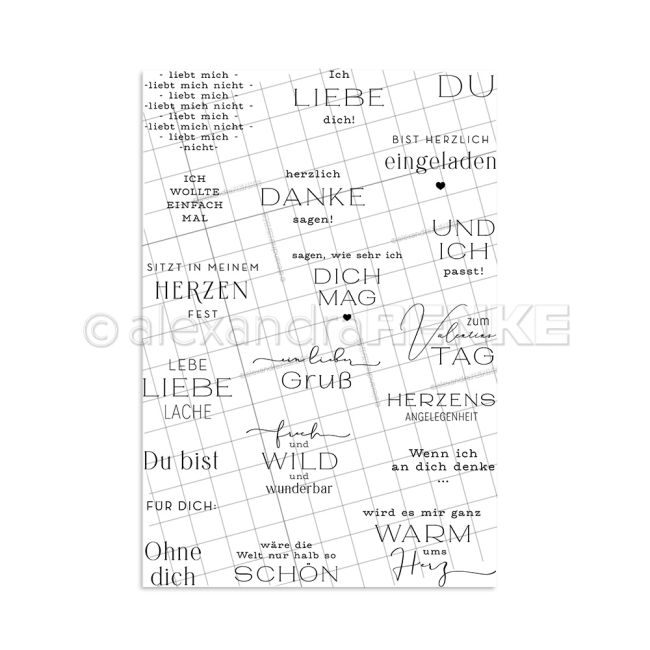 - liebt mich -
-liebt mich nicht -
- liebt mich -
-liebt mich nicht -
- liebt mich -
-liebt mich nicht -
- liebt mich -
-nicht-
Ich
LIEBE
dich!
DU
BIST HERZLICH
eingeladen
ICH
WOLLTE
EINFACH
MAL
herzlich
DANKE
sagen!
UND
ICH
passt!
sagen, wie sehr ich
DICH
MAG
SITZT IN MEINEM
HERZEN
FEST
© alexandraRENKE
zum
Valentins
TAG
ein lieber
Gruß
LEBE
LIEBE
LACHE
HERZENS
ANGELEGENHEIT
frech
und
WILD
und
wunderbar
Du bist
Wenn ich
an dich denke
...
FÜR DICH:
wird es mir ganz
WARM
ums
Herz
Ohne
dich
wäre die
Welt nur halb so
SCHÖN